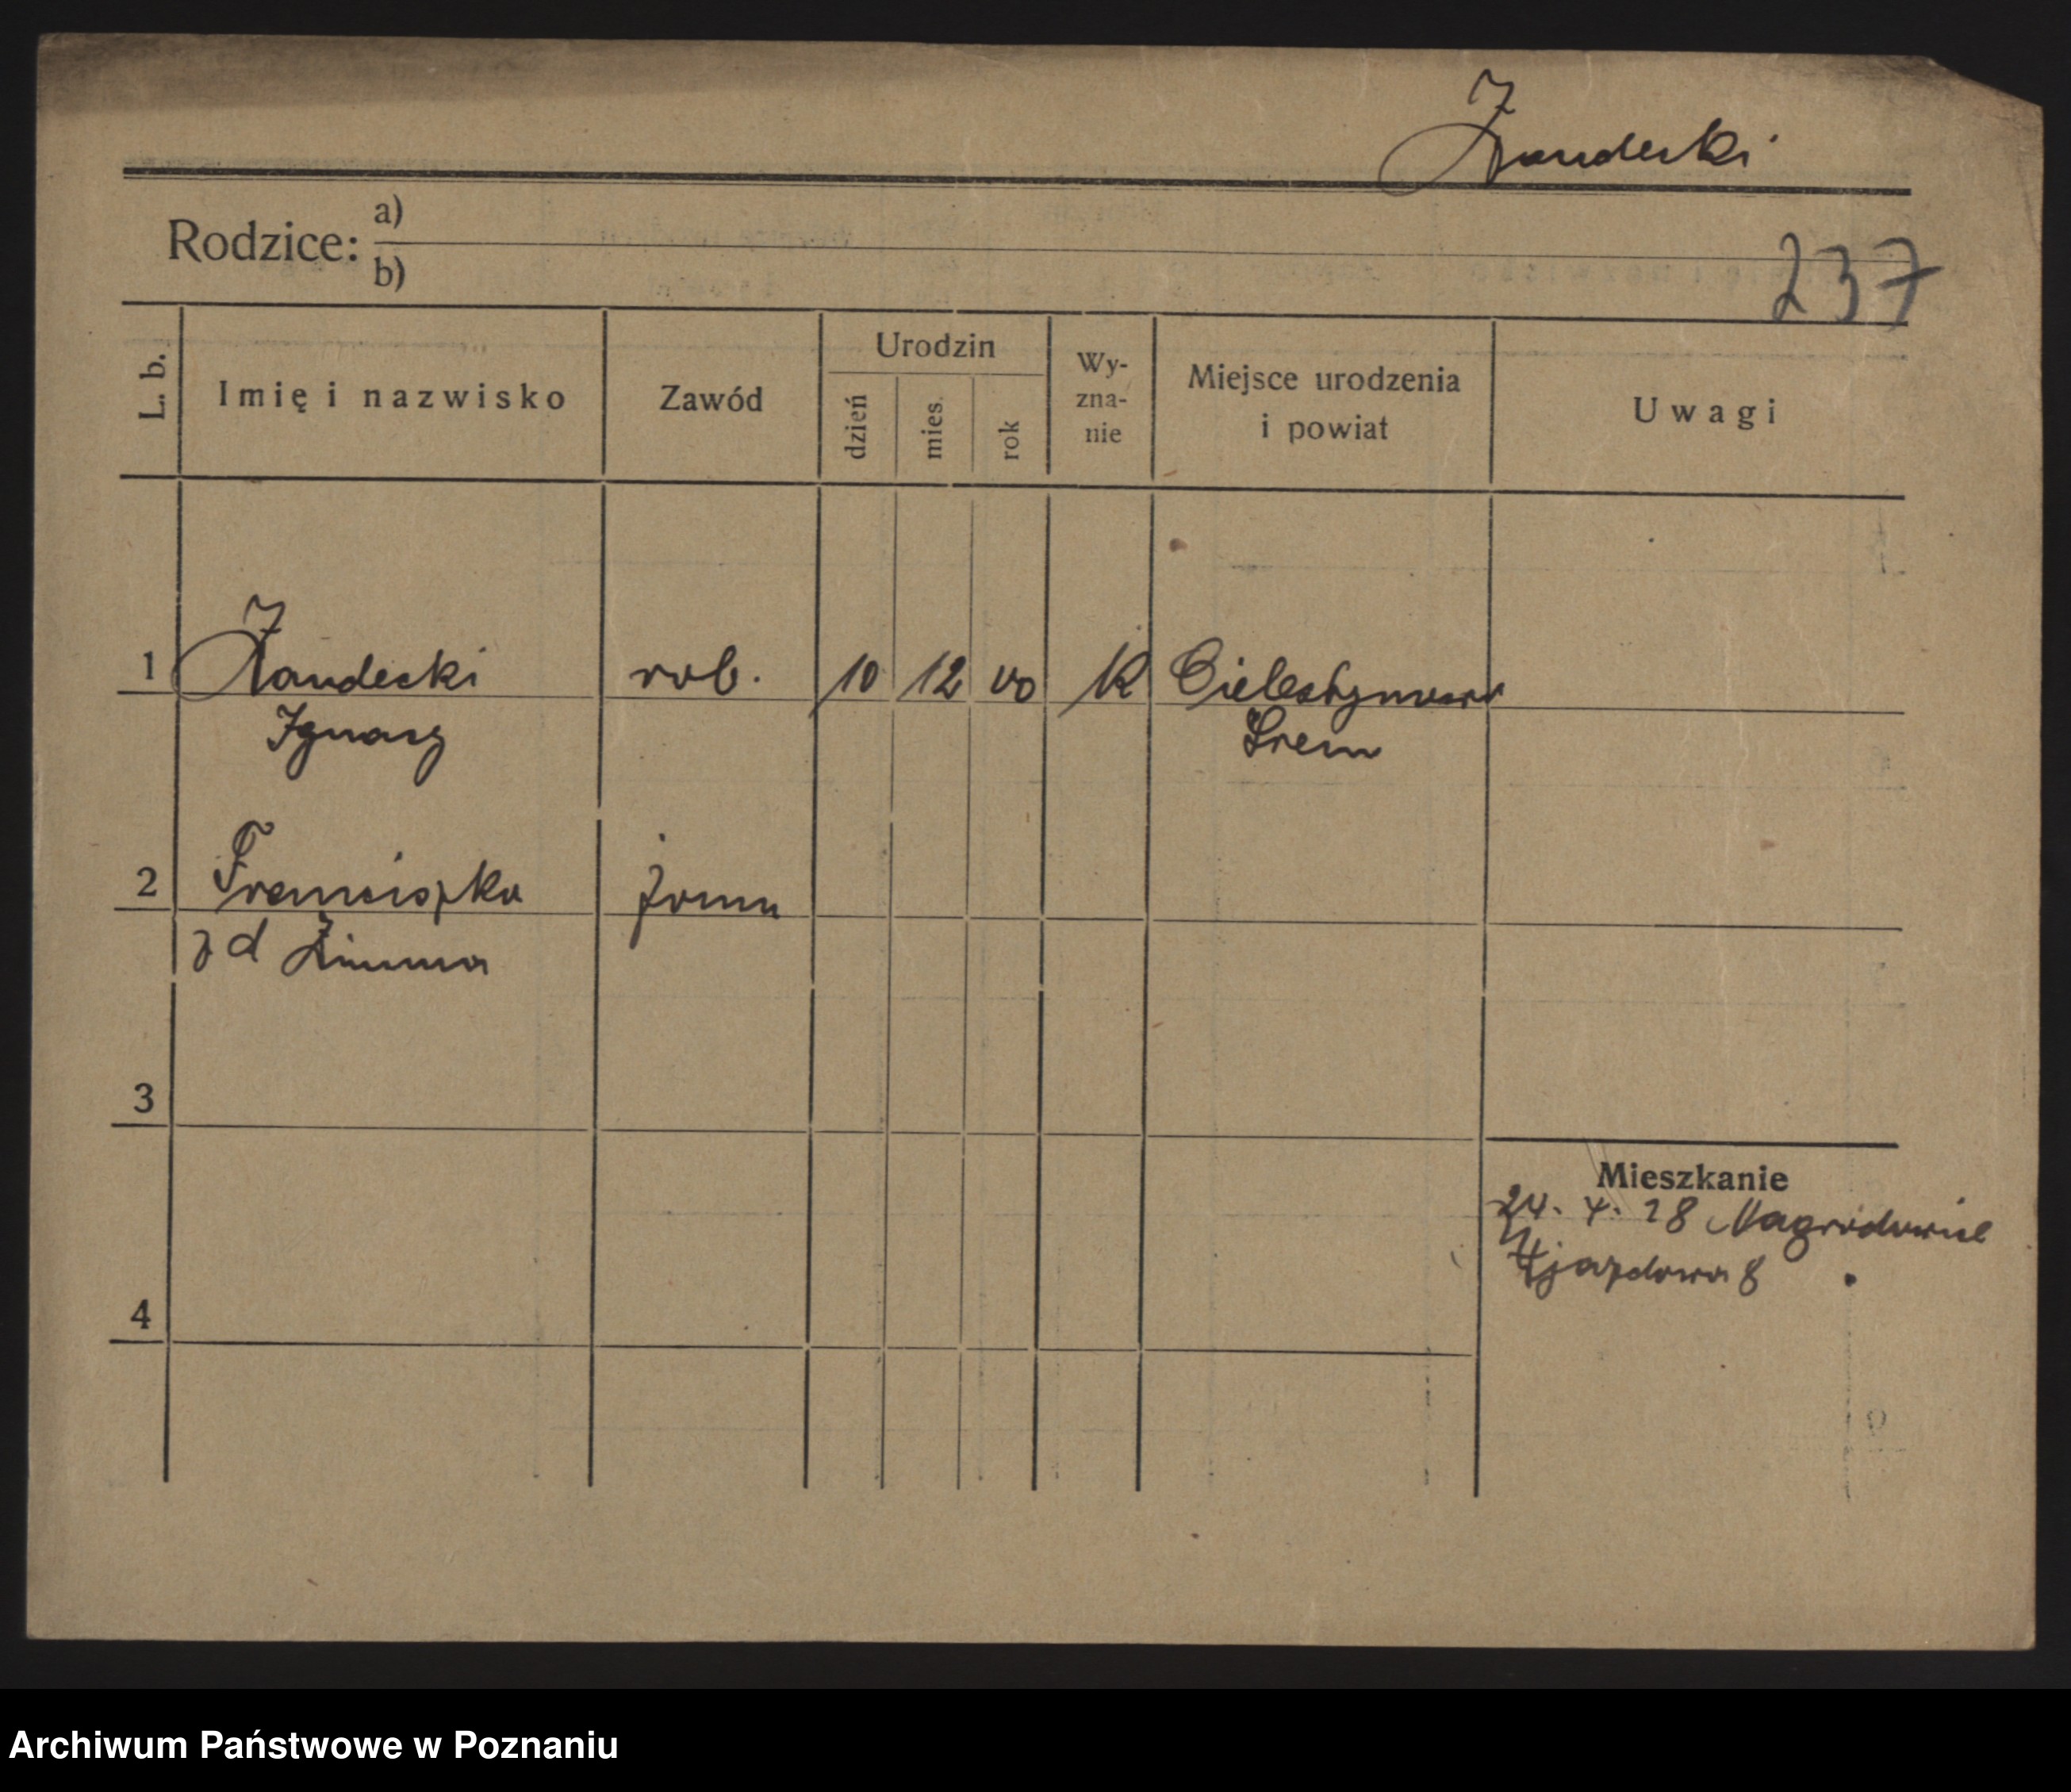 Żandecki
Rodzice: a)
b)
237
L. b. Imię i nazwisko Zawód Urodzin dzień mies. rok Wy-zna-nie Miejsce urodzenia i powiat Uwagi
1 Żandecki rob. 10 12 00 K Cielestynowo
Ignacy Śrem
2 Franciszka żona
z d Zimna
3
Mieszkanie
24. 4. 28 Nagrodowice
Ujazdowa 8
4
Archiwum Państwowe w Poznaniu